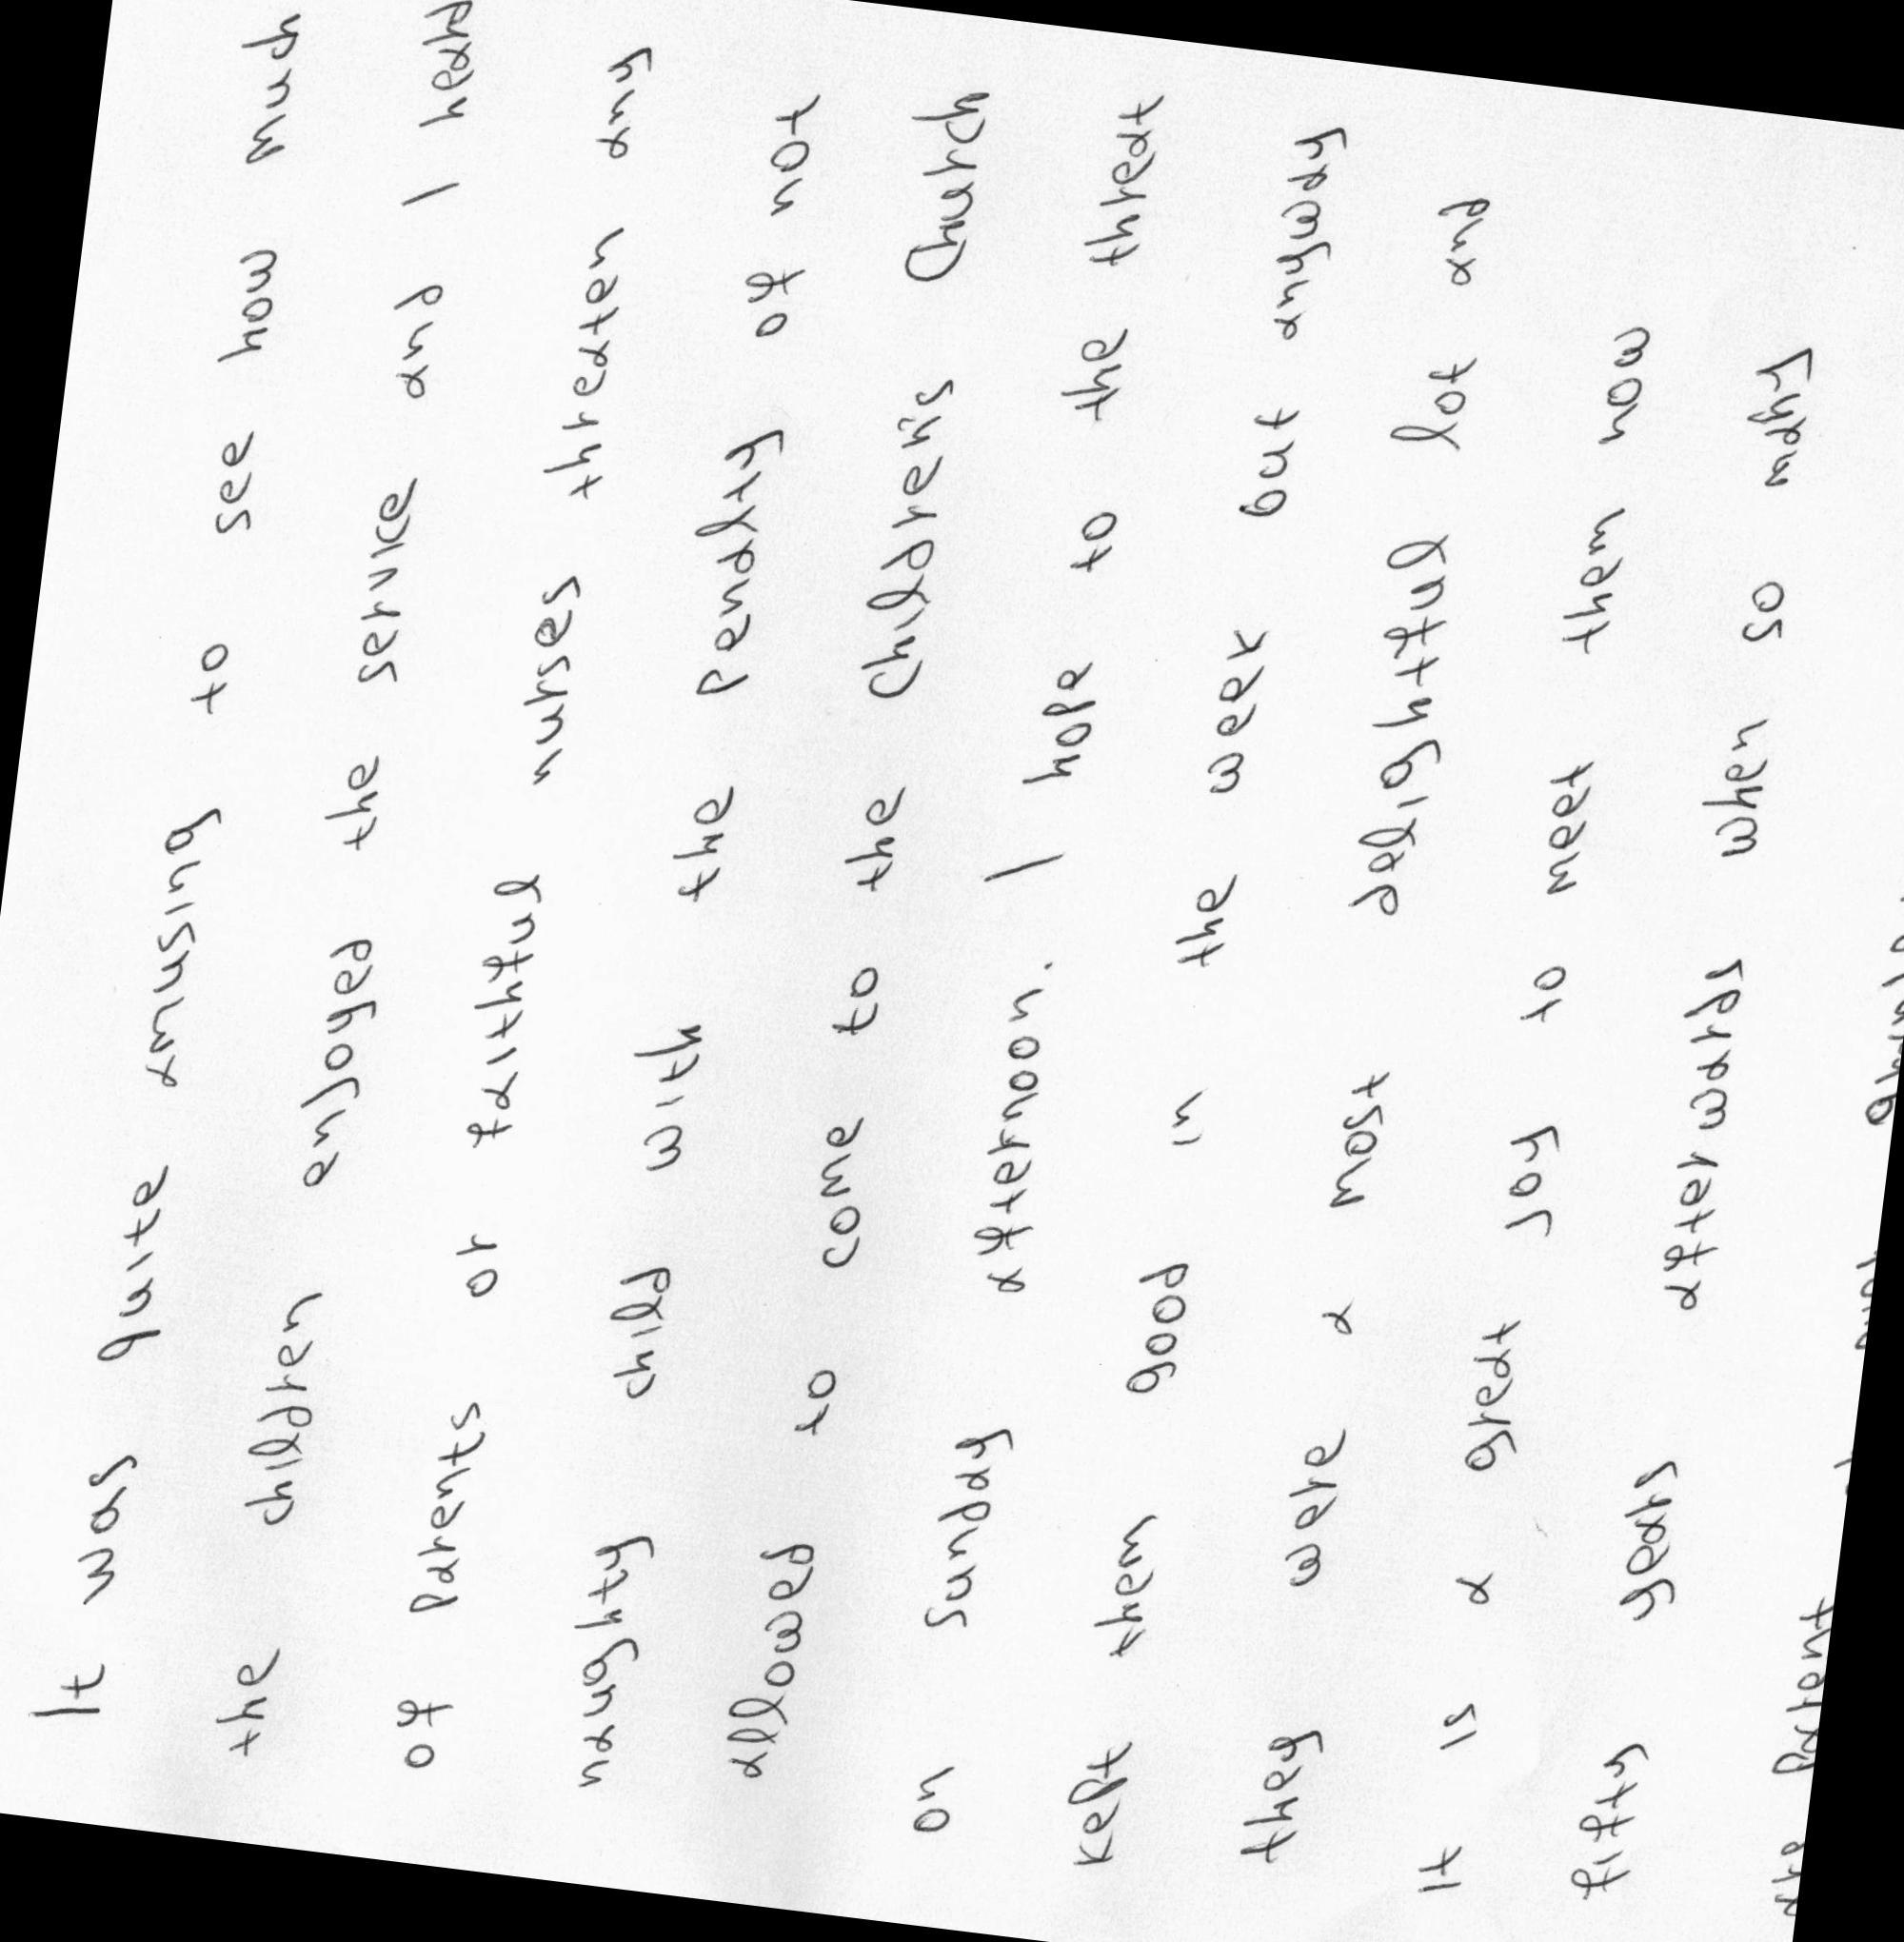 It was quite amusing to see how much
the children enjoyed the service and I heard
of parents or faithful nurses threaten any
naughty child with the penalty of not
allowed to come to the Children's Church
on Sunday afternoon. I hope to the threat
kept them good in the week but anyway
they were a most delightful lot and
It is a great joy to meet them now
fifty years afterwards when so many
are parent and